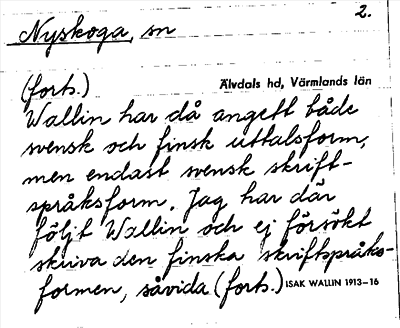 2.
Nyskoga, sn
(forts.)
Älvdals hd, Värmlands län
Wallin har då angett både
svensk och finsk uttalsform,
men endast svensk skrift-
språksform. Jag har där
följt Wallin och ej försökt
skriva den finska skriftspråks-
formen, såvida (forts.)
ISAK WALLIN 1913-16